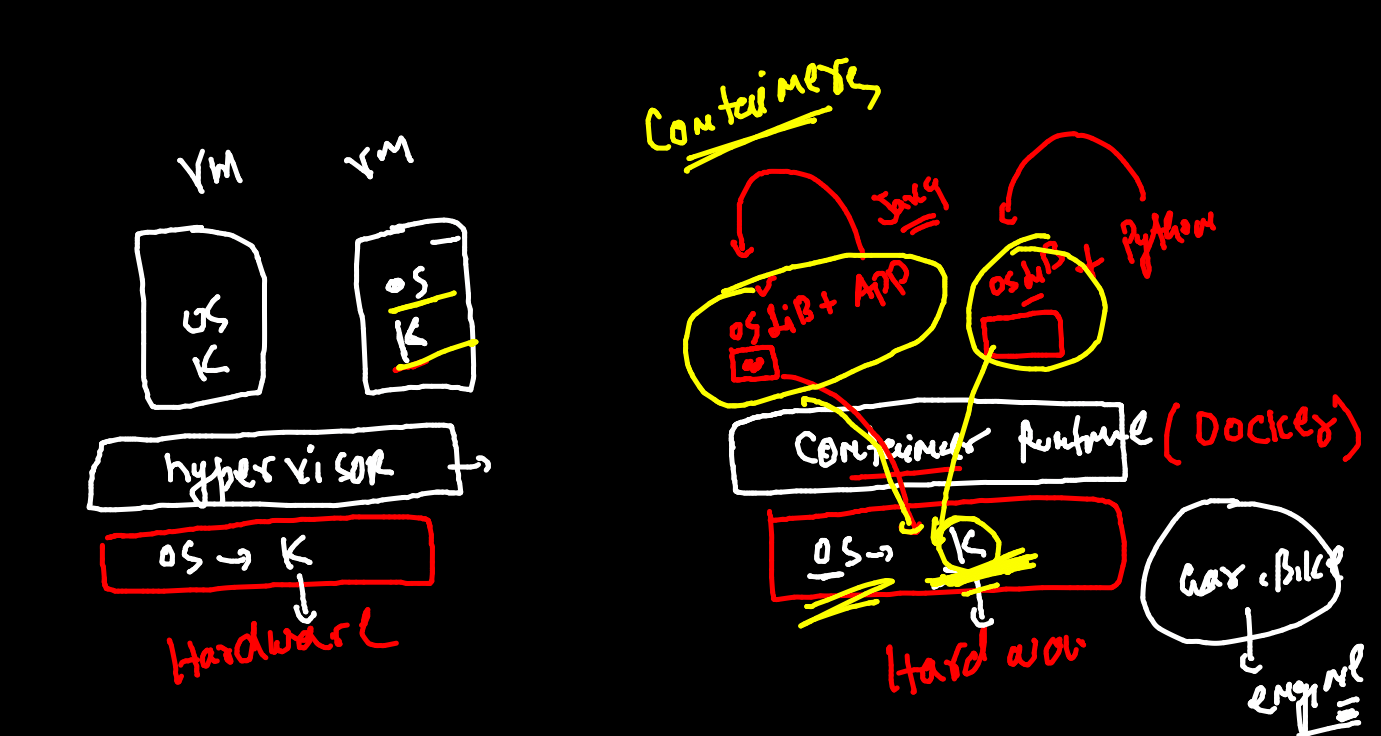 VM
VM
OS
K
OS
K
hypervisor
OS → K
Hardware
Containers
Java
OS LiB + APP
OS LiB + Python
Container Runtime (Docker)
OS → K
Car, Bike
engine